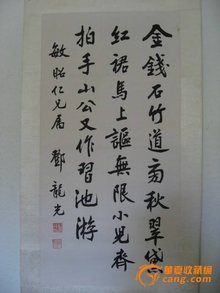 金錢石竹道旁秋翠黛
紅裙馬上謳無限小兒齊
拍手山公又作習池游
敏昭仁兄属 鄧龍光
華夏收藏网